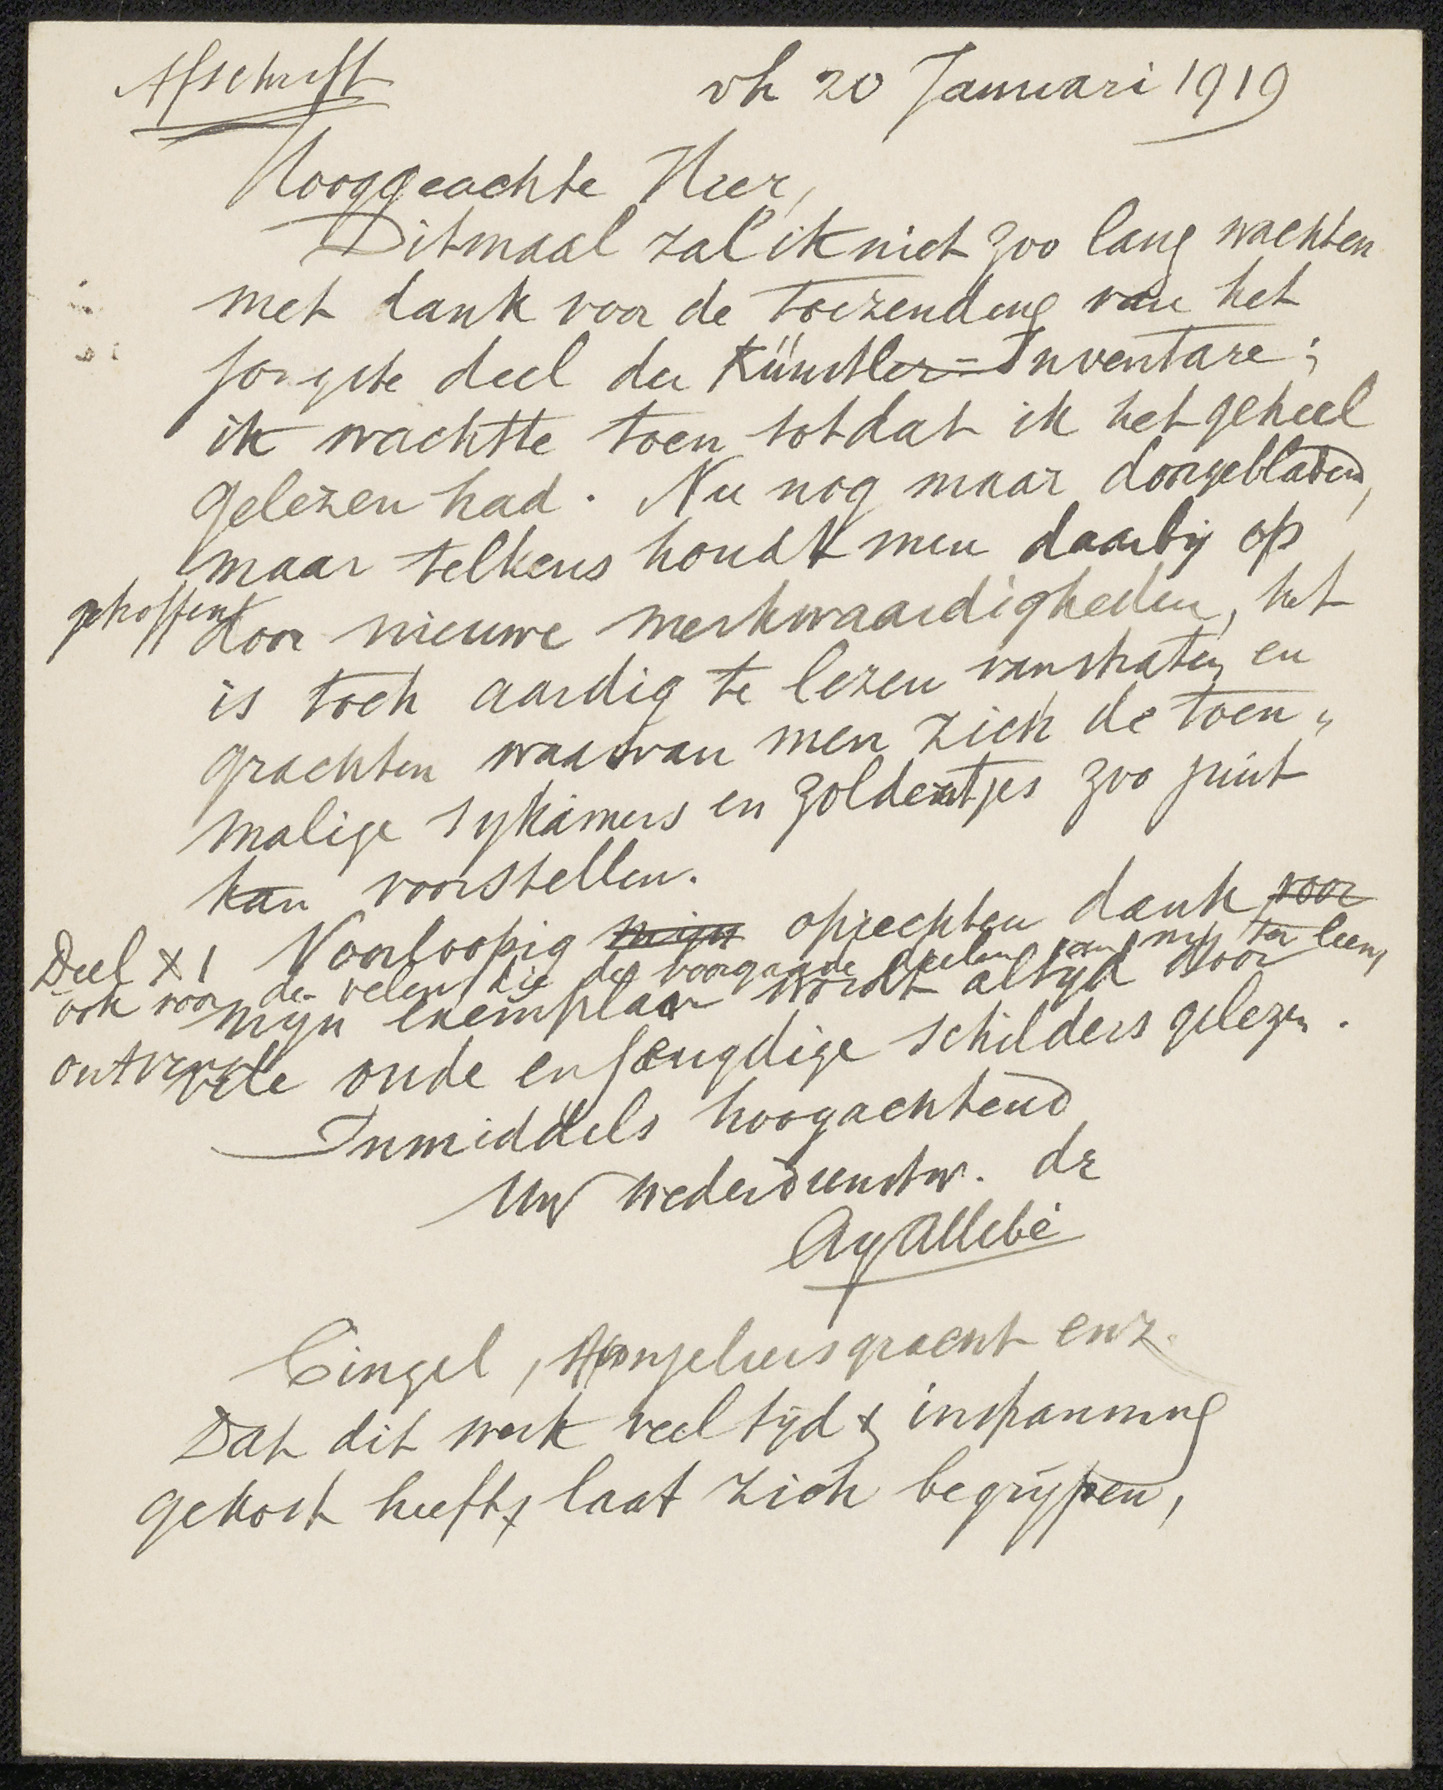 Afschrift
vh 20 Januari 1919
Hooggeachte Heer,
Ditmaal zal ik niet zoo lang wachten
met dank voor de toezending van het
jongste deel der Künstler=Inventare;
ik wachtte toen totdat ik het geheel
gelezen had. Nu nog maar doorgebladerd,
maar telkens houdt men daarbij op
getroffen door nieuwe merkwaardigheden, het
is toch aardig te lezen van straten en
grachten waarvan men zich de toen„
malige zijkamers en zoldertjes zoo juist
kan voorstellen.
Voorloopig mijn oprechten dank voor
Deel XI
ook voor de velen die de voorgaande deelen van mij ter leen
ontvingen
mijn exemplaar wordt altijd door
vele oude en jeugdige schilders gelezen.
Inmiddels hoogachtend
Uw wederdienstw. dr
Ag Allebé
Cingel, Anjeliersgracht enz.
Dat dit werk veel tijd & inspanning
gekost heeft, laat zich begrijpen,